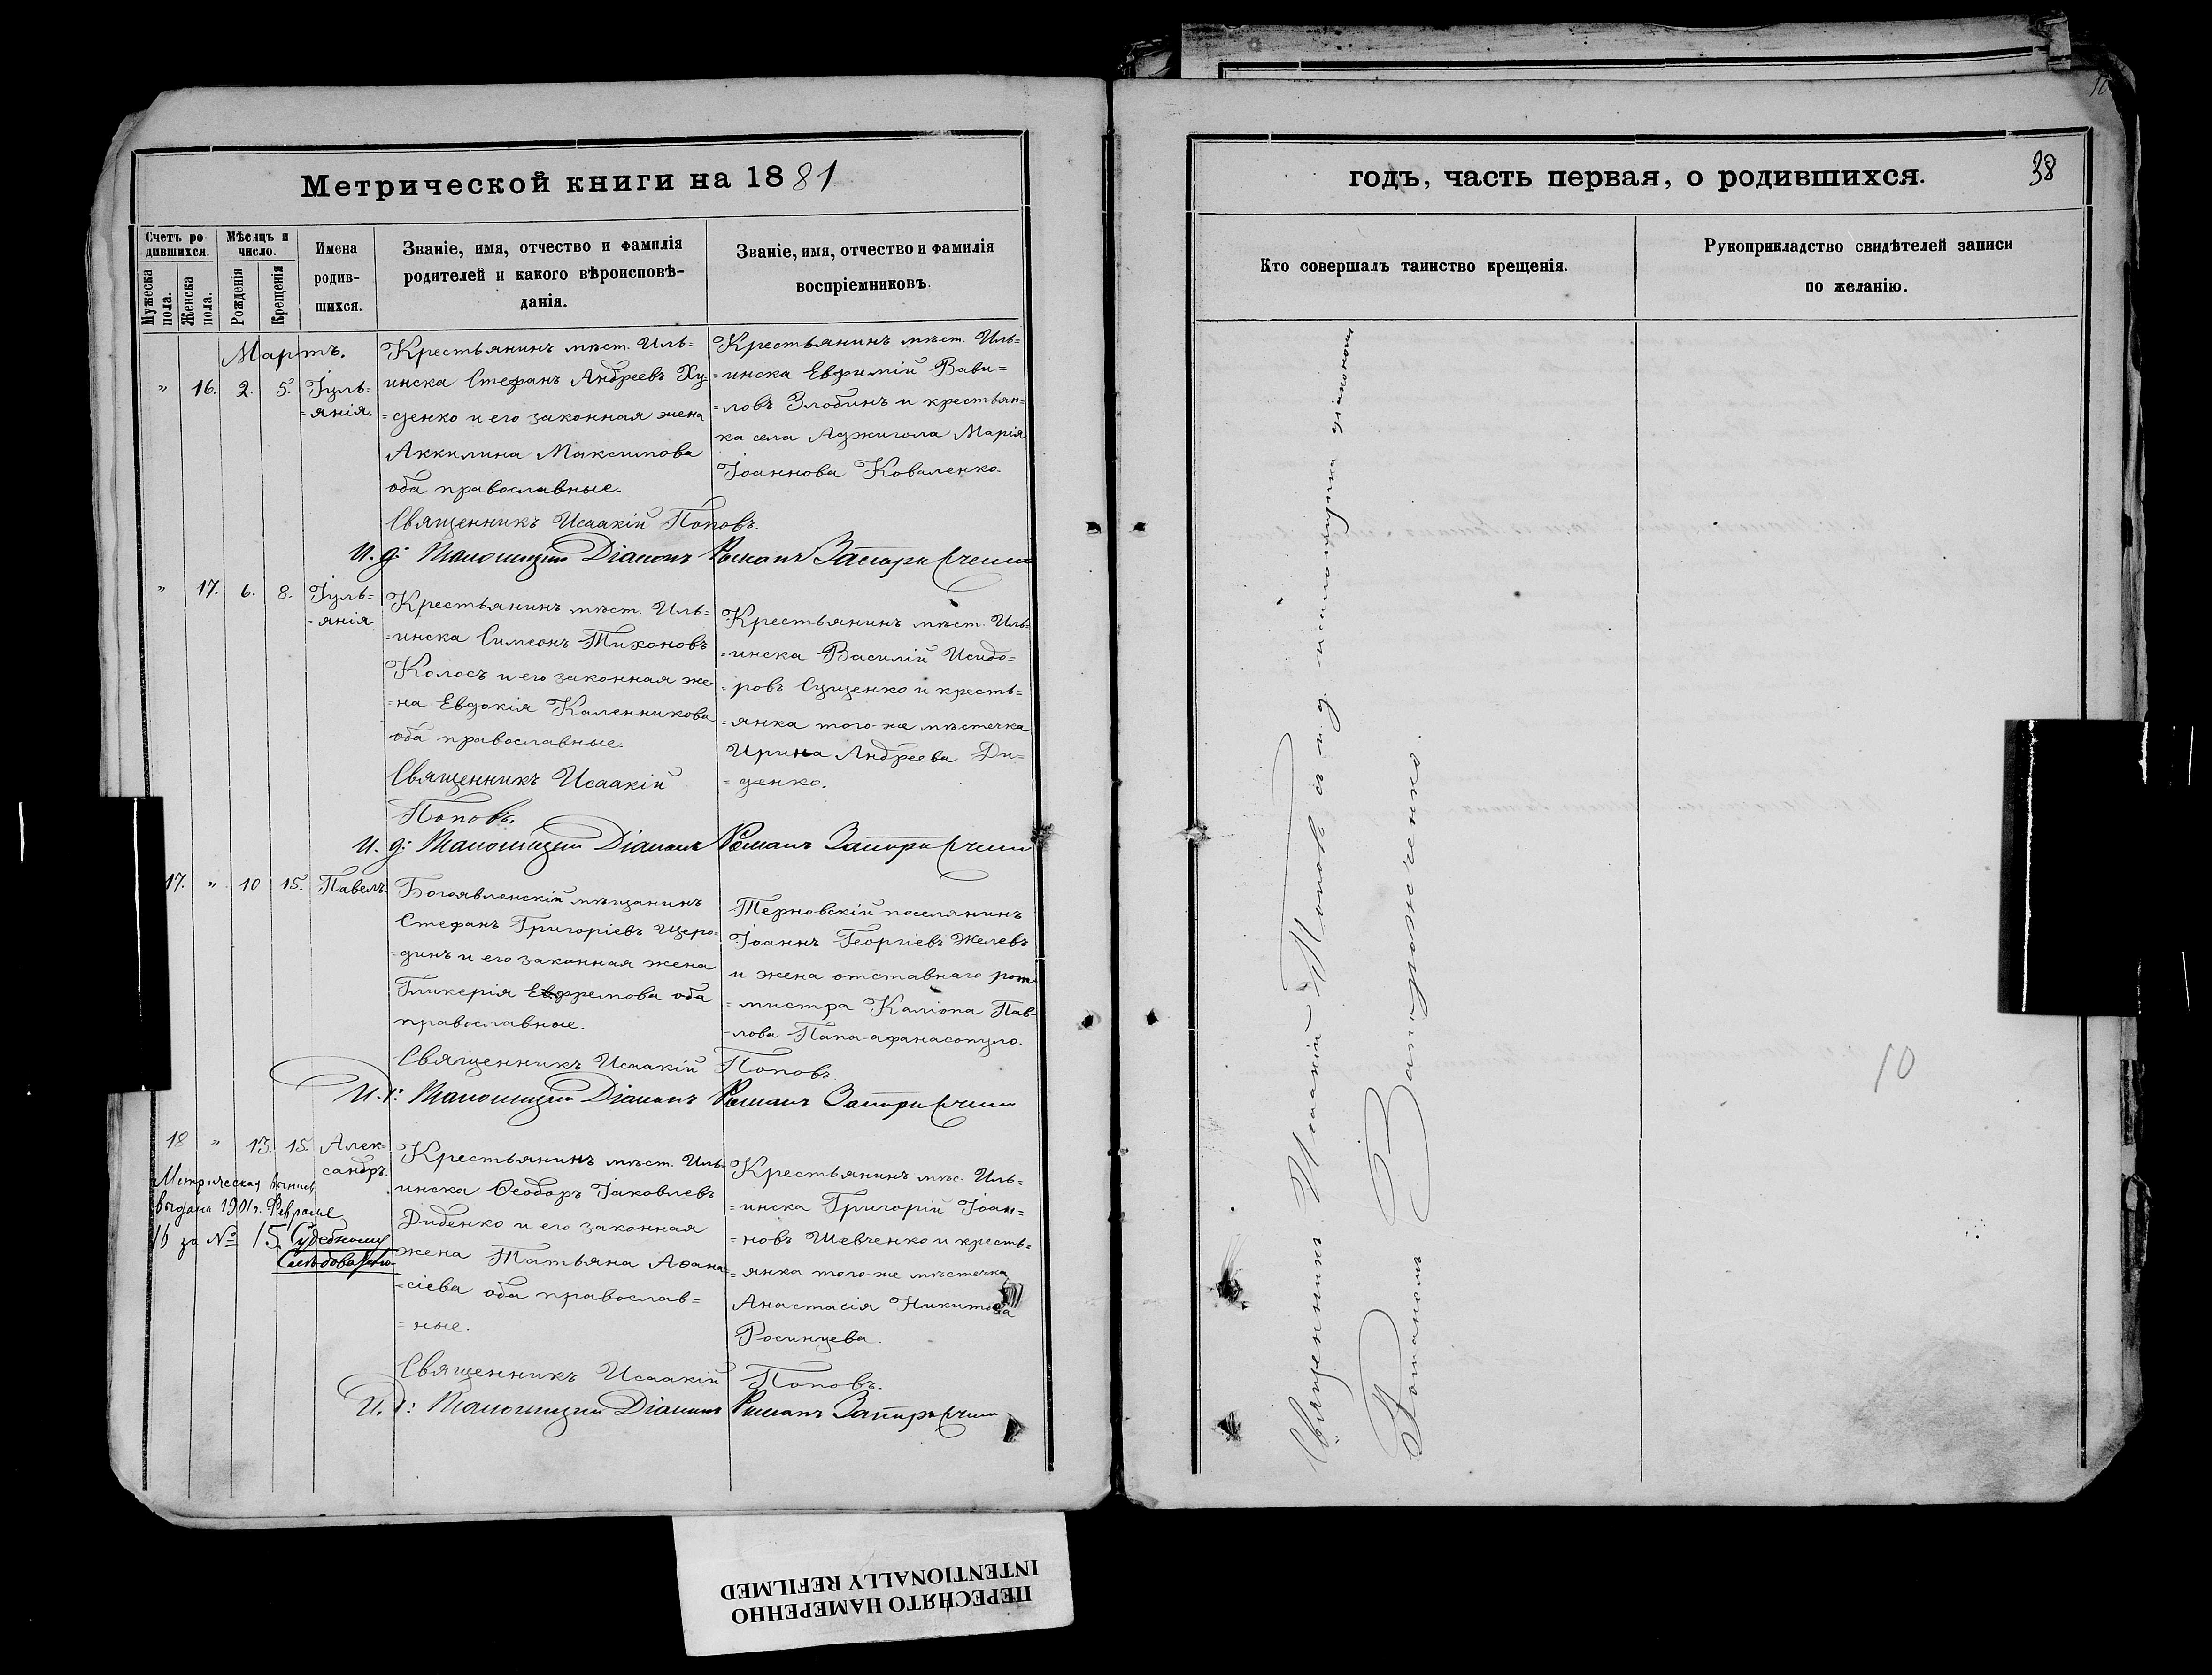 Метрической книги на 1881
Счетъ ро-
дившихся.
Мужеска
пола.
Женска
пола.
Мѣсяцъ и
число.
Рожденія
Крещенія
Имена
родив-
шихся.
Званіе, имя, отчество и фамилія
родителей и какого вѣроисповѣ-
данія.
Званіе, имя, отчество и фамилія
воспріемниковъ.
Мартъ.
" 16. 2. 5. Іуль=
=янія.
Крестьянинъ мѣст. Иль=
инска Стефанъ Андреевъ Ху=
=денко и его законная жена
Аккилина Максимова
оба православные.
Крестьянинъ мѣст. Иль=
=инска Евфимій Вави=
=ловъ Злобинъ и крестьян=
ка села Аджигола Марія
Іоаннова Коваленко.
Священникъ Исаакій Поповъ.
И. д: Псаломщика Діаконъ Романъ Запорожченко
" 17. 6. 8. Іуль=
=янія
Крестьянинъ мѣст. Иль=
=инска Симеонъ Тихоновъ
Колосъ и его законная же=
=на Евдокія Каленникова
оба православные.
Крестьянинъ мѣст. Иль=
=инска Василій Исидо=
=ровъ Сущенко и кресть=
=янка того-же мѣстечка
Ирина Андреева Ди=
=денко.
Священникъ Исаакій
Поповъ.
И. д: Псаломщика Діаконъ Романъ Запорожченко
17. " 10 15. Павелъ.
Богоявленскій мѣщанинъ
Стефанъ Григоріевъ Щеро=
=динъ и его законная жена
Гликерія Ефремова оба
православные.
Терновскій поселянинъ
Іоаннъ Георгіевъ Желевъ
и жена отставнаго рот=
=мистра Каліопа Пав=
=лова Папа-афанасопуло.
Священникъ Исаакій Поповъ.
И. д: Псаломщика Діаконъ Романъ Запорожченко
18 " 13. 15. Алек=
сандръ.
Метрическая
выдана 1901 г. Февраля
16 за № 15. Судебному
Слѣдователю
Крестьянинъ мѣст. Иль=
инска Ѳеодоръ Іаковлевъ
Диденко и его законная
жена Татьяна Аѳана=
=сіева оба православ=
=ные.
Крестьянинъ мѣс. Иль=
=инска Григорій Іоан=
=новъ Шевченко и кресть=
=янка того-же мѣстечка
Анастасія Никитова
Росинцева.
Священникъ Исаакій Поповъ.
И. д: Псаломщика Діаконъ Романъ Запорожченко
годъ, часть первая, о родившихся.
38
Кто совершалъ таинство крещенія.
Рукоприкладство свидѣтелей записи
по желанію.
Священникъ Исаакій Поповъ съ и. д. псаломщика діакономъ
Романомъ Запорожченко.
10
ПЕРЕСНЯТО НАМЕРЕННО
INTENTIONALLY REFILMED